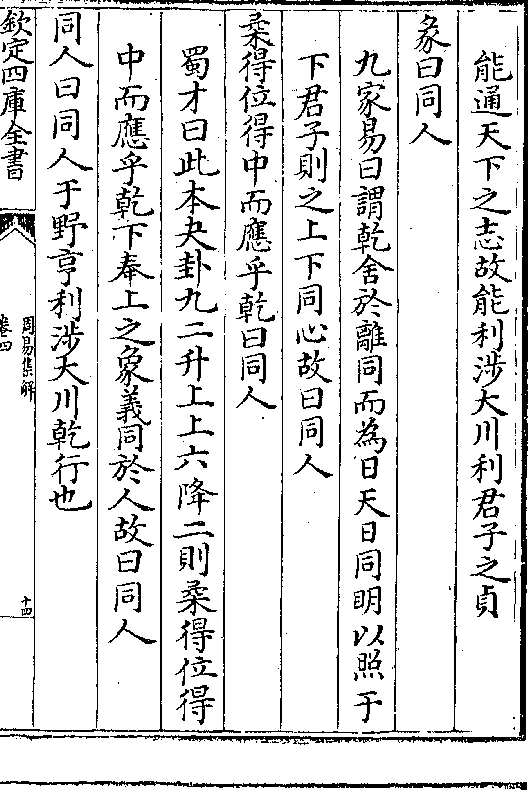 能通天下之志故能利涉大川利君子之貞
彖曰同人
九家易曰謂乾舍於離同而為日天日同明以照于
下君子則之上下同心故曰同人
柔得位得中而應乎乾曰同人
蜀才曰此本夬卦九二升上上六降二則柔得位得
中而應乎乾下奉上之象義同於人故曰同人
同人曰同人于野亨利涉大川乾行也
欽定四庫全書
周易集解
卷四
十四